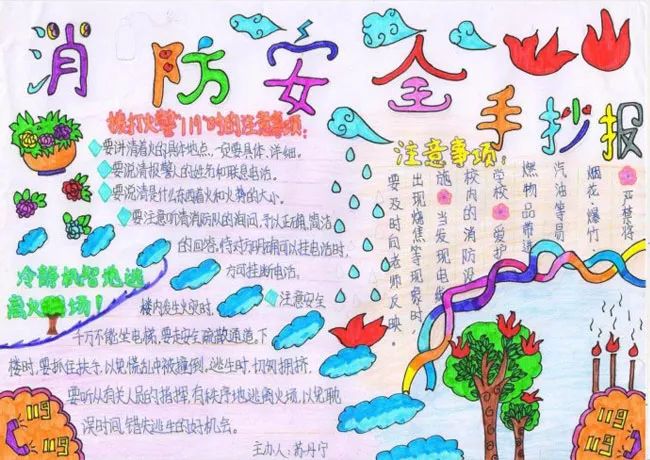 消防安全手抄报
拨打火警"119"时的注意事项：
要讲清着火的具体地点，一定要具体、详细。
要说清报警人的姓名和联系电话。
要说清是什么东西着火和火势的大小。
要注意听清消防队的询问，予以正确，简洁
的回答，待对方明确可以挂电话时，
方可挂断电话。
冷静机智地逃
离火场！
注意安全
楼内发生火灾时，
千万不能坐电梯，要走安全疏散通道。下
楼时，要抓住扶手，以免慌乱中被撞倒。逃生时，切勿拥挤，
要听从有关人员的指挥，有秩序地逃离火场，以免耽
误时间，错失逃生的好机会。
主办人：苏丹宁
注意事项：
严禁将
烟花、爆竹
汽油等易
燃物品带进
学校 爱护
校内的消防设
施 当发现电器
出现烧焦等现象时，
要及时向老师反映。
119
119
119
119